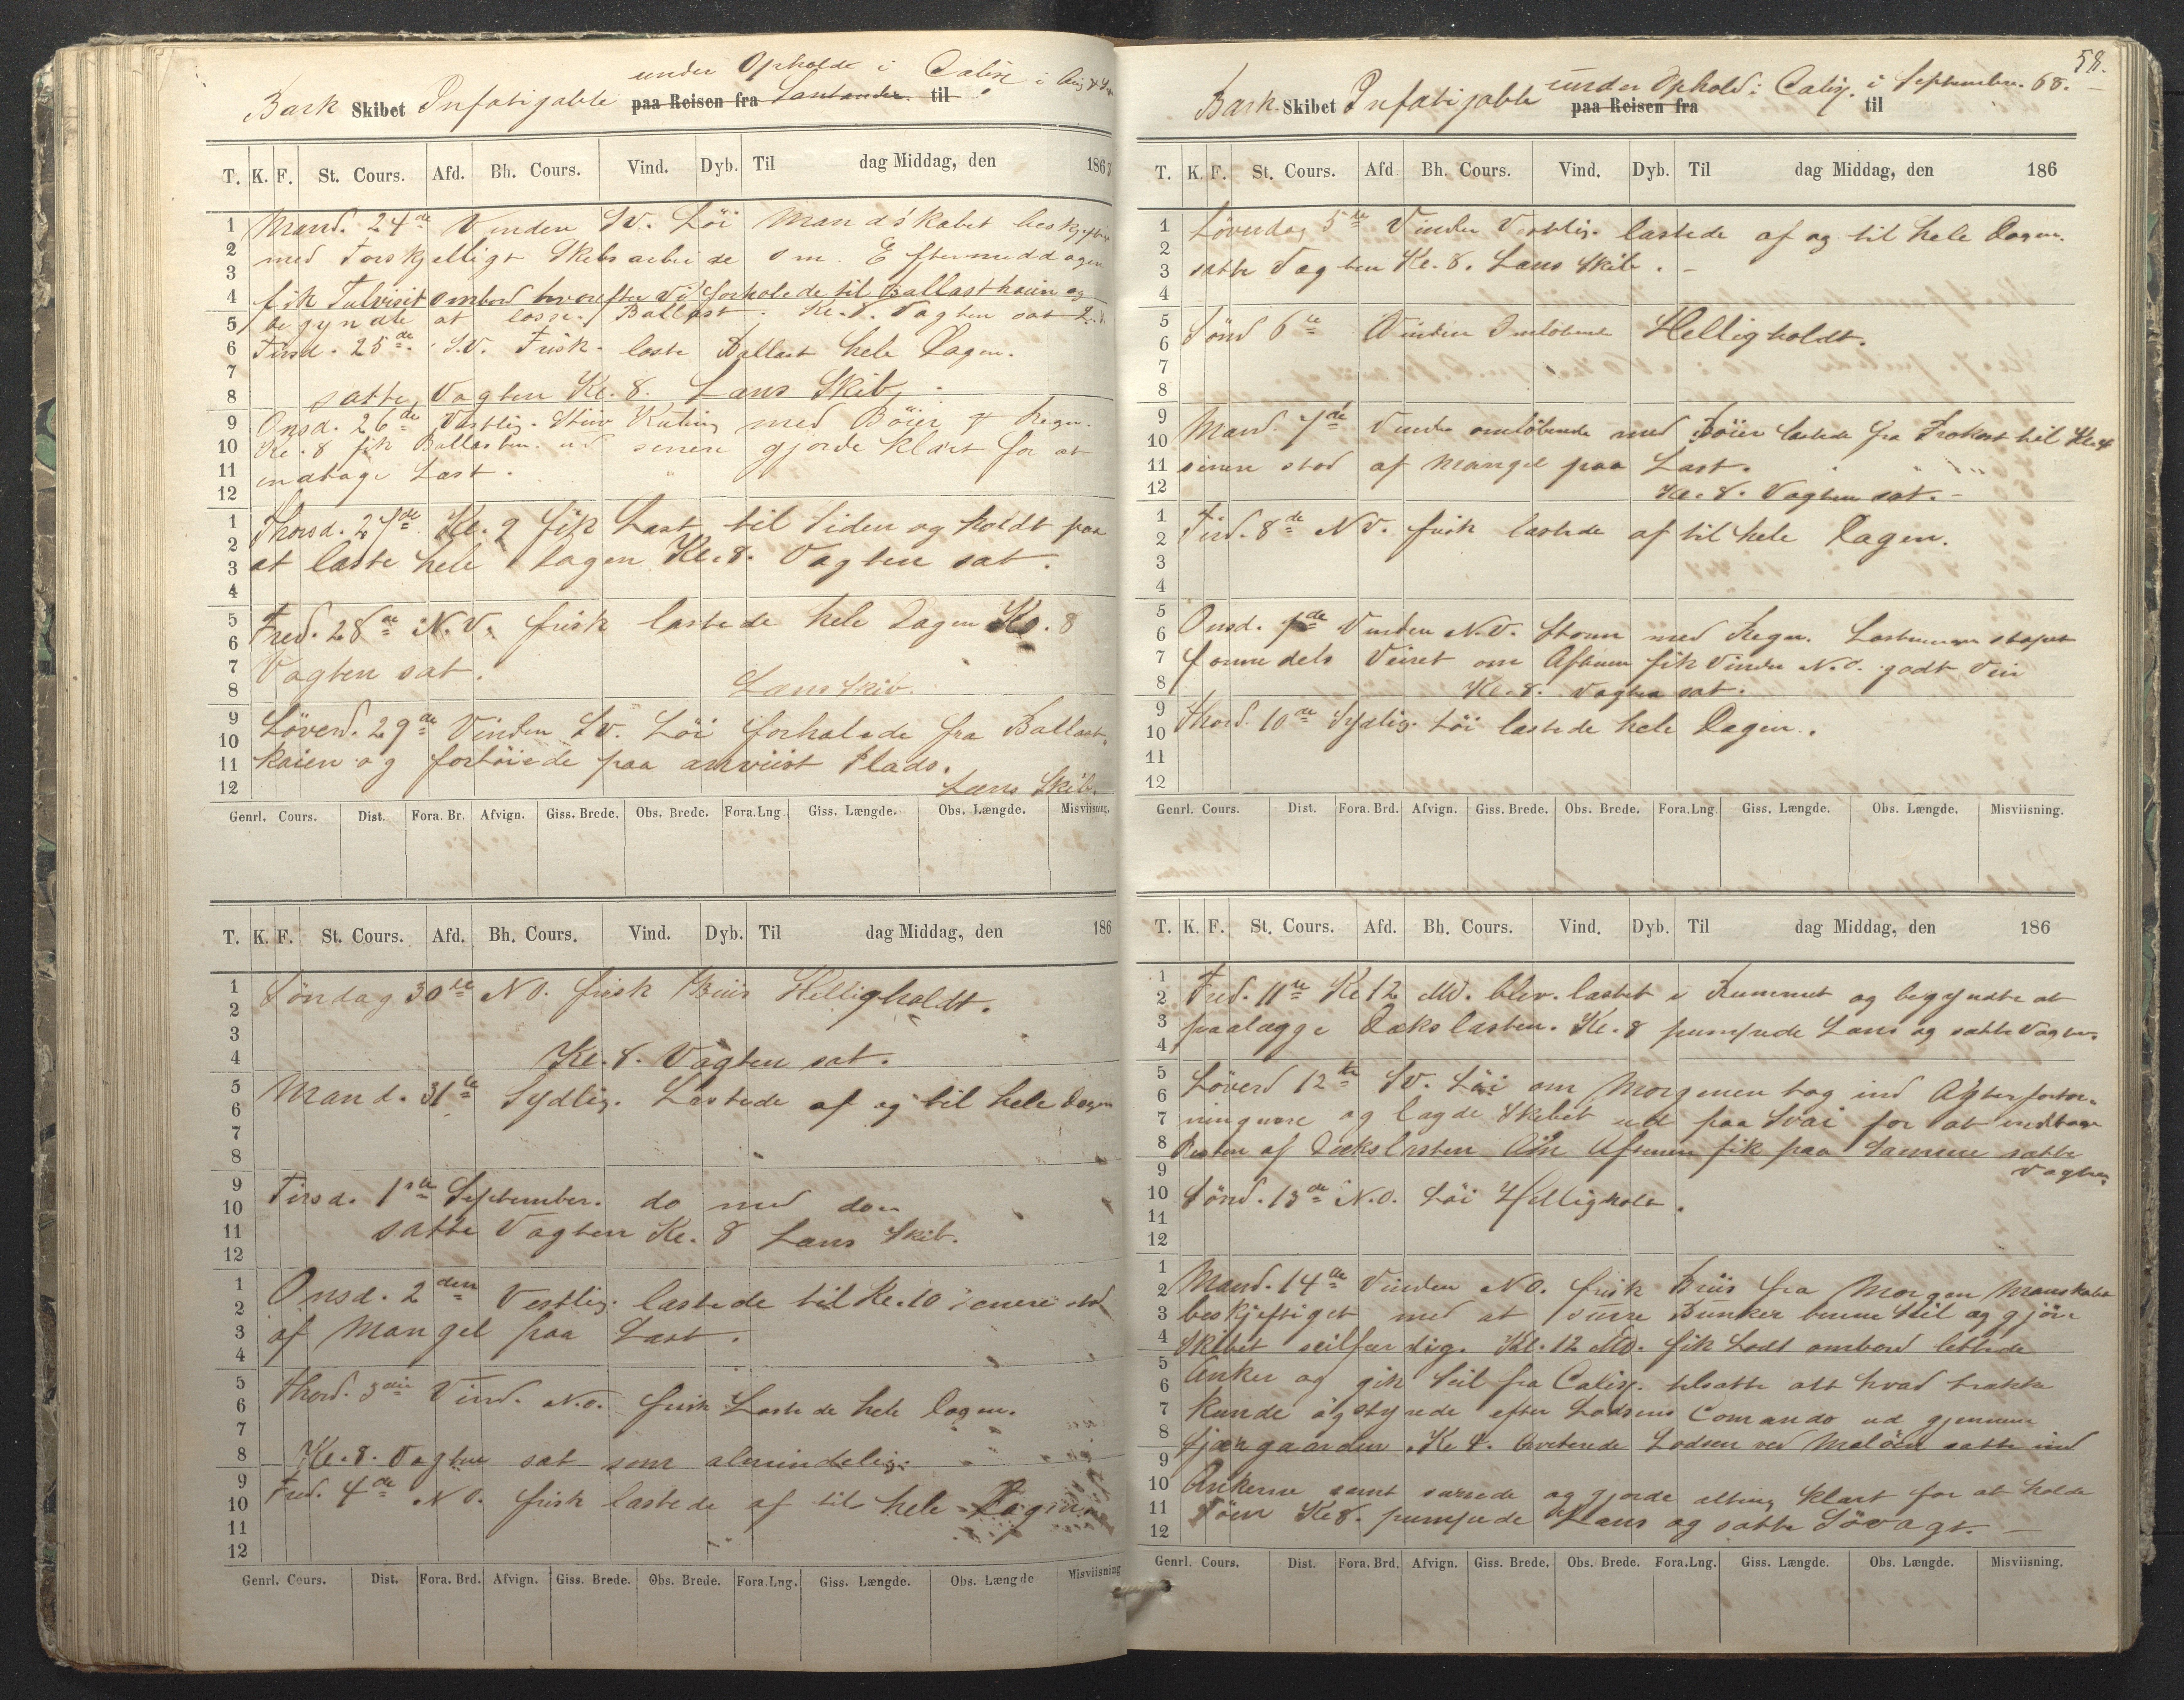 under Opholdt i Calix i Aug &
Bark Skibet Infatigable paa Reisen fra Santander til
T. K. F. St. Cours. Afd. Bh. Cours. Vind. Dyb. Til dag Middag, den 1867
1 Mand. 24de Vinden SV. Löi Mandskabet beskjeftiget
2 med Forskjelligt Skibsarbeide om Eftermeddagen
3
4 fik Tulvisit ombord hvorefter Vi forholede til Ballastkaien og
5 begyndte at losse Ballast. Kl. 8. Vagten sat
6 Tirsd. 25de S.V. Frisk loste Ballast hele Dagen.
7
8 satte Vagten Kl. 8. Læns Skib
9 Onsd. 26de Vestlig Stiv Kuling med Böier & Regn.
10 Kl. 8 fik Ballasten ud senere gjorde klart for at
11 indtage Last.
12
1 Thorsd. 27de Kl. 9 fik Last til Siden og holdt paa
2
3 at laste hele Dagen Kl. 8. Vagten sat.
4
5 Fred. 28de N.V. frisk lastede hele Dagen Kl. 8
6
7 Vagten sat.
8 Læns Skib.
9 Löverd. 29de Vinden SV. Löi forhalede fra Ballast-
10
11 kaien og fortöiede paa anviist Plads.
12 Læns Skib.
Genrl. Cours. Dist. Fora. Br. Afvign. Giss. Brede. Obs. Brede. Fora.Lng. Giss. Længde. Obs. Længde. Misviisning.
T. K. F. St. Cours. Afd. Bh. Cours. Vind. Dyb. Til dag Middag, den 186
1 Söndag 30te NO. frisk Briis Helligholdt.
2
3
4 Kl. 8. Vagten sat.
5 Mand. 31te Sydlig. Lastede af og til hele Dagen
6
7
8
9 Tirsd. 1ste September. do med do
10
11 satte Vagten Kl. 8 Læns Skib.
12
1 Onsd. 2den Vestlig. lastede til Kl. 10 senere stod
2
3 af Mangel paa Last.
4
5 Thord. 3die Vind. N.O. frisk Lastede hele Dagen.
6
7
8 Kl. 8. Vagten sat som almindelig.
9 Fred. 4de NO. frisk lastede af til hele Dagen
10
11
12
Genrl. Cours. Dist. Fora. Brd. Afvign. Giss. Brede. Obs. Brede. Fora.Lng. Giss. Længde. Obs. Længde Misviisning
58.
Bark Skibet Infatigable under Ophold i Calix. i September. 68.
paa Reisen fra til
T. K. F. St. Cours. Afd Bh. Cours. Vind. Dyb. Til dag Middag, den 186
1 Löverdag 5te Vinden Vestlig. lastede af og til hele Dagen.
2
3 satte Vagten Kl. 8. Læns Skib.
4
5 Sönd 6te Vinden Omlöbende Helligholdt.
6
7
8
9 Mand. 7de Vinden omlöbende med Böier lastede fra Frokost til Kl. 4
10
11 senere stod af Mangel paa Last.
12 Kl. 8. Vagten sat.
1 Tirsd. 8de NV. frisk lastede af til hele Dagen.
2
3
4
5 Onsd. 9de Vinden N.V. Storm med Regn. Lastningen stopet
6
7 formedels Veiret om Aftenen fik Vinden N.O. godt Veir
8 Kl. 8. Vagten sat.
9 Thord. 10de Sydlig. Löi lastede hele Dagen.
10
11
12
Genrl. Cours. Dist. Fora. Brd. Afvign. Giss. Brede. Obs. Brede. Fora.Lng Giss. Længde. Obs. Længde. Misviisning.
T. K. F. St. Cours. Afd. Bh. Cours. Vind. Dyb. Til dag Middag, den 186
1
2 Fred. 11te Kl 12 Md. blev lastet i Rummet og begyndte at
3 paalægge Dækslasten. Kl. 8 pumpede Læns og satte Vagten.
4
5 Löverd 12te SV. Löi om Morgenen tog ind Agterfortöi-
6
7 ningerne og lagde Skibet udt paa Svai for at indtage
8 Resten af Dækslasten Om Aftenen fik paa Samme satte
9 Vagten
10 Sönd. 13de N.O. Löi Helligholdt.
11
12
1
2 Mand. 14de Vinden NO. frisk Briis fra Morgen Manskabet
3 beskjeftiget med at surre Bunker benne Seil og gjöre
4 Skibet seilfærdig. Kl. 12 Md. fik Lodt ombord lettede
5
6 Anker og gik Seil fra Calix. tilsatte alt hvad trække
7 kunde og styrede efter Lodsens Comando ud gjennem
8 Skjærgaarden. Kl 4. kviterede Lodsen ved Malören satte ind
9
10 Ankerne samt surrede og gjorde alting klart for at holde
11 Söen Kl 8. pumpede Læns og satte Sövagt.
12
Genrl. Cours. Dist. Fora. Brd. Afvign. Giss. Brede. Obs. Brede. Fora.Lng. Giss. Længde. Obs. Længde. Misviisning.